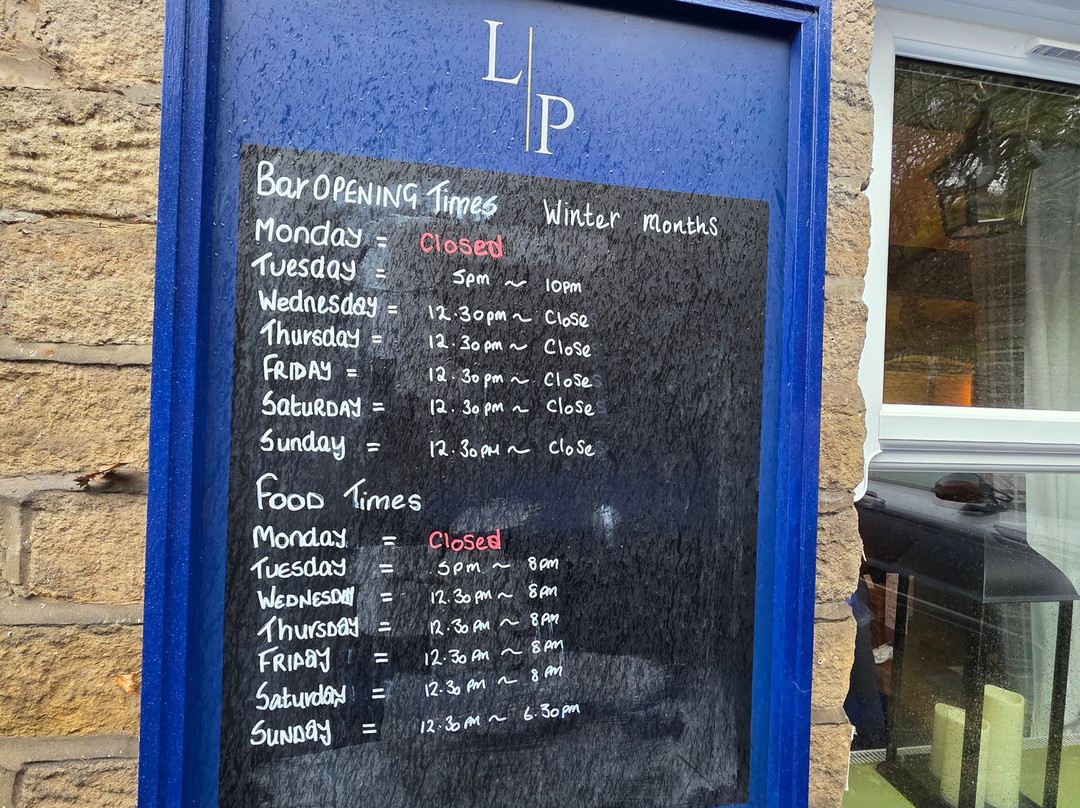 L
P
Bar OPENING Times Winter months
Monday = Closed
Tuesday = 5pm ~ 10pm
Wednesday = 12.30pm ~ Close
Thursday = 12.30pm ~ Close
FRIDAY = 12.30pm ~ Close
SaturDAY = 12.30pm ~ Close
Sunday = 12.30pm ~ Close
FOOD Times
Monday = Closed
TUESDAY = 5pm ~ 8pm
WEDNESDAY = 12.30pm ~ 8pm
Thursday = 12.30pm ~ 8pm
FRIDAY = 12.30pm ~ 8pm
Saturday = 12.30pm ~ 8pm
SUNDAY = 12.30pm ~ 6.30pm